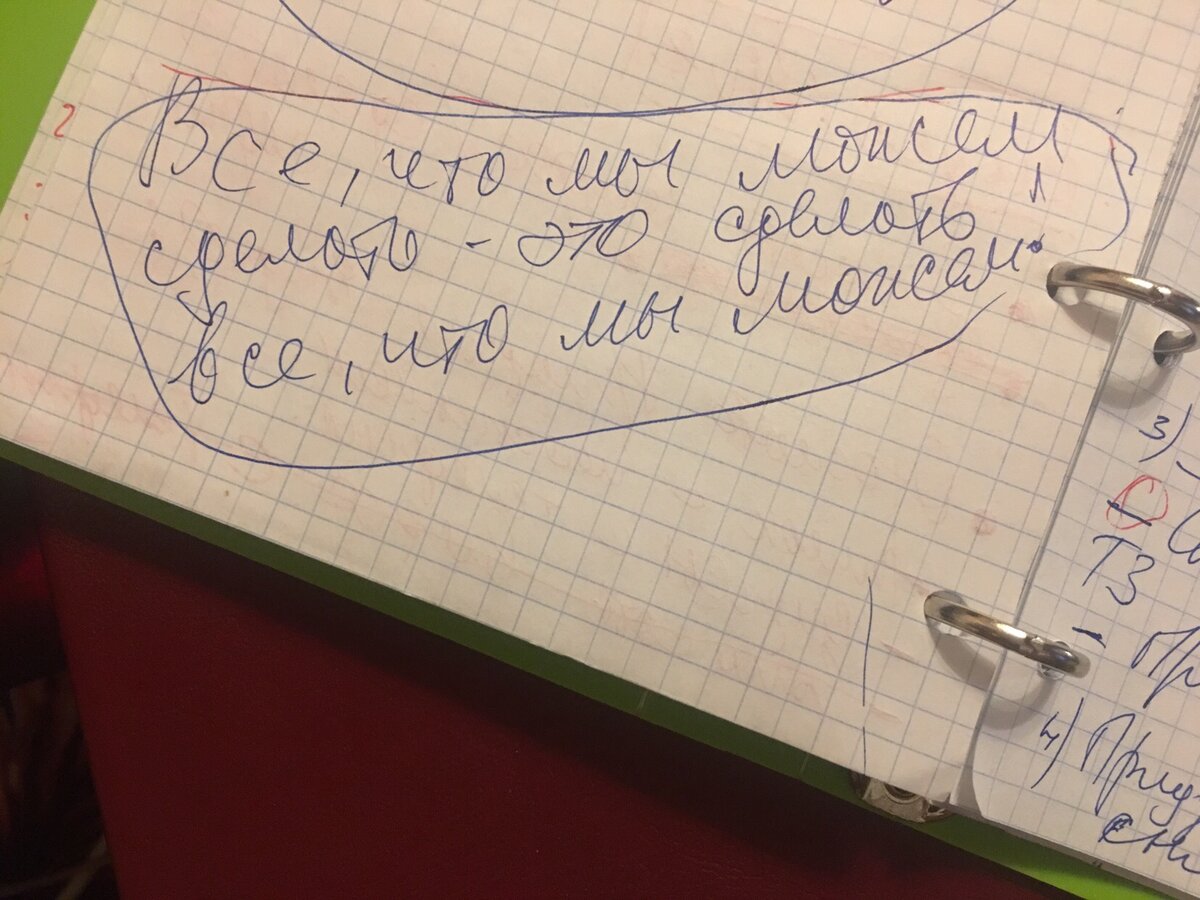 Все, что мы можем
сделать - это сделать
все, что мы можем.
3)
ТЗ
4)